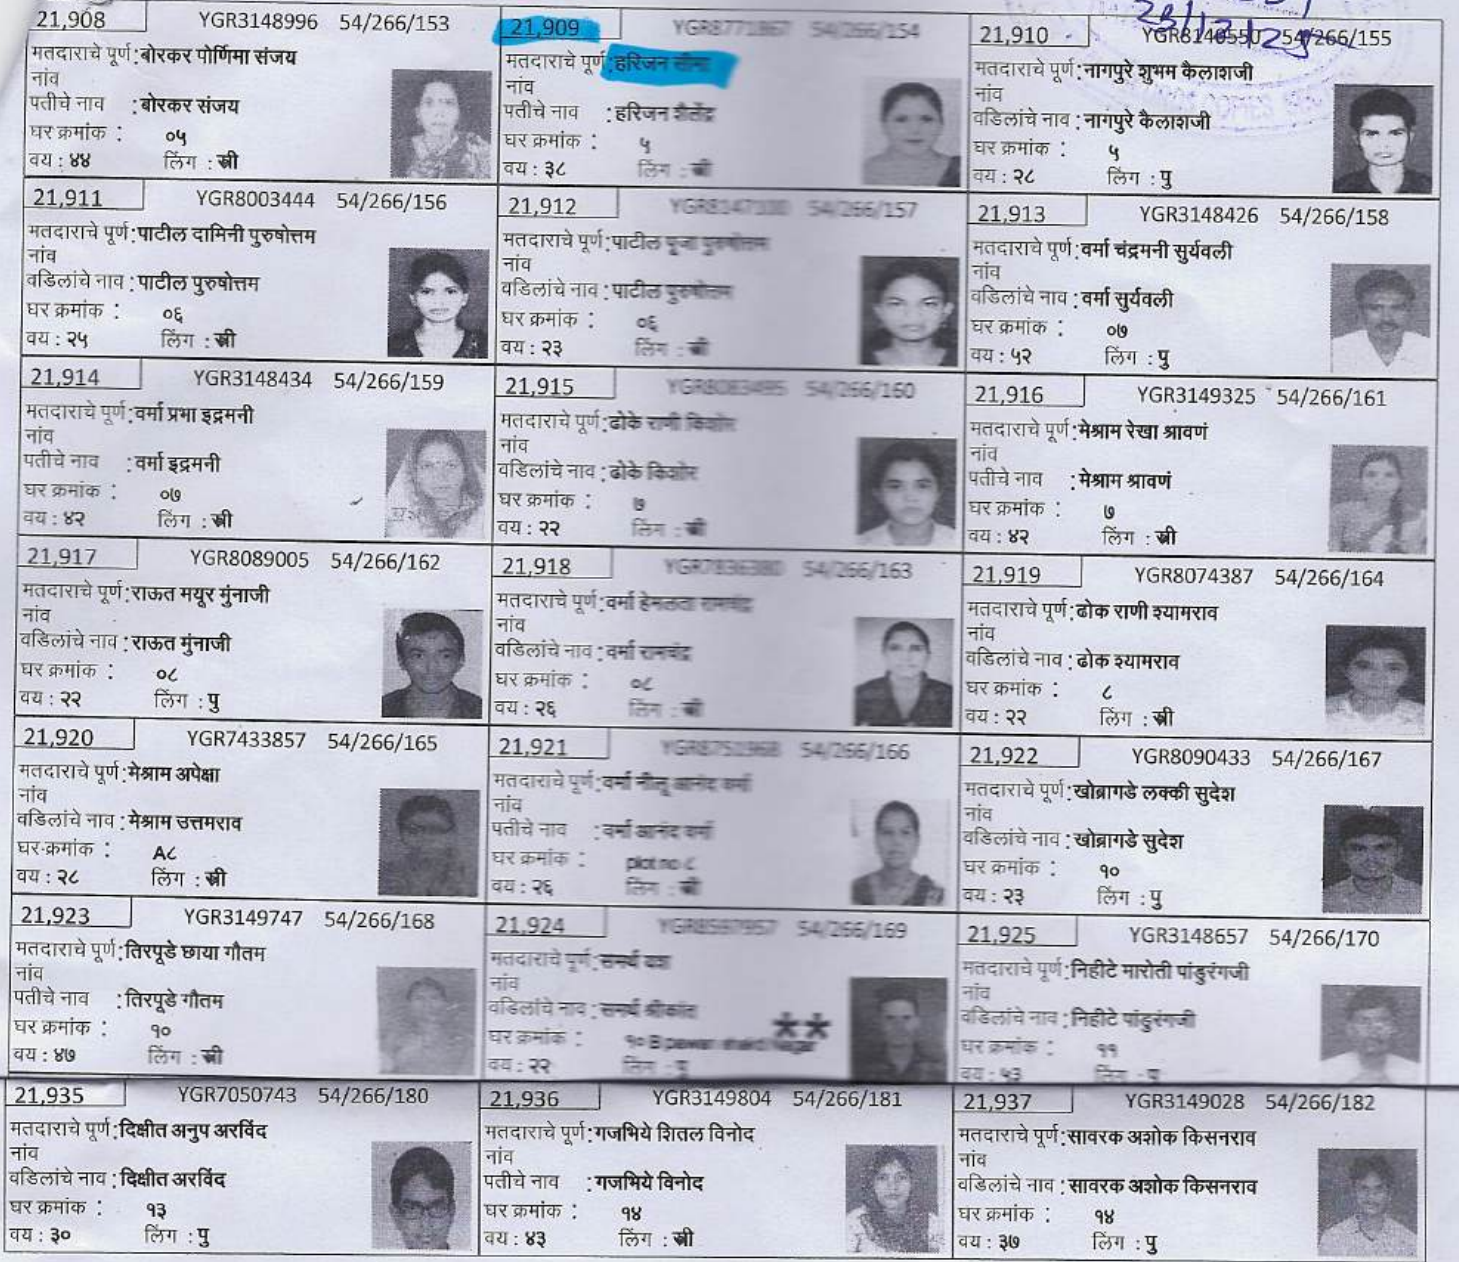 21,908 YGR3148996 54/266/153
मतदाराचे पूर्ण:बोरकर पोर्णिमा संजय
नांव
पतीचे नाव :बोरकर संजय
घर क्रमांक : ०५
वय : ४४ लिंग : स्त्री
21,909 54/266/154
मतदाराचे पूर्ण:हरिजन सीमा
नांव
पतीचे नाव :हरिजन शैलेंद्र
घर क्रमांक : ५
वय : ३८ लिंग : स्त्री
21,910 54/266/155
मतदाराचे पूर्ण:नागपुरे शुभम कैलाशजी
नांव
वडिलांचे नाव :नागपुरे कैलाशजी
घर क्रमांक : ५
वय : २८ लिंग : पु
21,911 YGR8003444 54/266/156
मतदाराचे पूर्ण:पाटील दामिनी पुरुषोत्तम
नांव
वडिलांचे नाव :पाटील पुरुषोत्तम
घर क्रमांक : ०६
वय : २५ लिंग : स्त्री
21,912 54/266/157
मतदाराचे पूर्ण:पाटील पूजा पुरुषोत्तम
नांव
वडिलांचे नाव :पाटील पुरुषोत्तम
घर क्रमांक : ०६
वय : २३ लिंग : स्त्री
21,913 YGR3148426 54/266/158
मतदाराचे पूर्ण:वर्मा चंद्रमनी सुर्यवली
नांव
वडिलांचे नाव :वर्मा सुर्यवली
घर क्रमांक : ०७
वय : ५२ लिंग : पु
21,914 YGR3148434 54/266/159
मतदाराचे पूर्ण:वर्मा प्रभा इद्रमनी
नांव
पतीचे नाव :वर्मा इद्रमनी
घर क्रमांक : ०७
वय : ४२ लिंग : स्त्री
21,915 54/266/160
मतदाराचे पूर्ण:ढोके राणी किशोर
नांव
वडिलांचे नाव :ढोके किशोर
घर क्रमांक : ७
वय : २२ लिंग : स्त्री
21,916 YGR3149325 54/266/161
मतदाराचे पूर्ण:मेश्राम रेखा श्रावणं
नांव
पतीचे नाव :मेश्राम श्रावणं
घर क्रमांक : ७
वय : ४२ लिंग : स्त्री
21,917 YGR8089005 54/266/162
मतदाराचे पूर्ण:राऊत मयूर मुंनाजी
नांव
वडिलांचे नाव :राऊत मुंनाजी
घर क्रमांक : ०८
वय : २२ लिंग : पु
21,918 54/266/163
मतदाराचे पूर्ण:वर्मा हेमलता रामचंद्र
नांव
वडिलांचे नाव :वर्मा रामचंद्र
घर क्रमांक : ०८
वय : २६ लिंग : स्त्री
21,919 YGR8074387 54/266/164
मतदाराचे पूर्ण:ढोक राणी श्यामराव
नांव
वडिलांचे नाव :ढोक श्यामराव
घर क्रमांक : ८
वय : २२ लिंग : स्त्री
21,920 YGR7433857 54/266/165
मतदाराचे पूर्ण:मेश्राम अपेक्षा
नांव
वडिलांचे नाव :मेश्राम उत्तमराव
घर क्रमांक : A८
वय : २८ लिंग : स्त्री
21,921 54/266/166
मतदाराचे पूर्ण:वर्मा नीलू आनंद वर्मा
नांव
पतीचे नाव :वर्मा आनंद वर्मा
घर क्रमांक : plot no ८
वय : २६ लिंग : स्त्री
21,922 YGR8090433 54/266/167
मतदाराचे पूर्ण:खोब्रागडे लक्की सुदेश
नांव
वडिलांचे नाव :खोब्रागडे सुदेश
घर क्रमांक : १०
वय : २३ लिंग : पु
21,923 YGR3149747 54/266/168
मतदाराचे पूर्ण:तिरपूडे छाया गौतम
नांव
पतीचे नाव :तिरपूडे गौतम
घर क्रमांक : १०
वय : ४७ लिंग : स्त्री
21,924 54/266/169
मतदाराचे पूर्ण:समर्थ यश
नांव
वडिलांचे नाव :समर्थ श्रीकांत
घर क्रमांक : १० B pawan shakti Nagar
वय : २२ लिंग : पु
**
21,925 YGR3148657 54/266/170
मतदाराचे पूर्ण:निहीटे मारोती पांडुरंगजी
नांव
वडिलांचे नाव :निहीटे पांडुरंगजी
घर क्रमांक : ११
वय : ५३ लिंग : पु
21,935 YGR7050743 54/266/180
मतदाराचे पूर्ण:दिक्षीत अनुप अरविंद
नांव
वडिलांचे नाव :दिक्षीत अरविंद
घर क्रमांक : १३
वय : ३० लिंग : पु
21,936 YGR3149804 54/266/181
मतदाराचे पूर्ण:गजभिये शितल विनोद
नांव
पतीचे नाव :गजभिये विनोद
घर क्रमांक : १४
वय : ४३ लिंग : स्त्री
21,937 YGR3149028 54/266/182
मतदाराचे पूर्ण:सावरक अशोक किसनराव
नांव
वडिलांचे नाव :सावरक अशोक किसनराव
घर क्रमांक : १४
वय : ३७ लिंग : पु